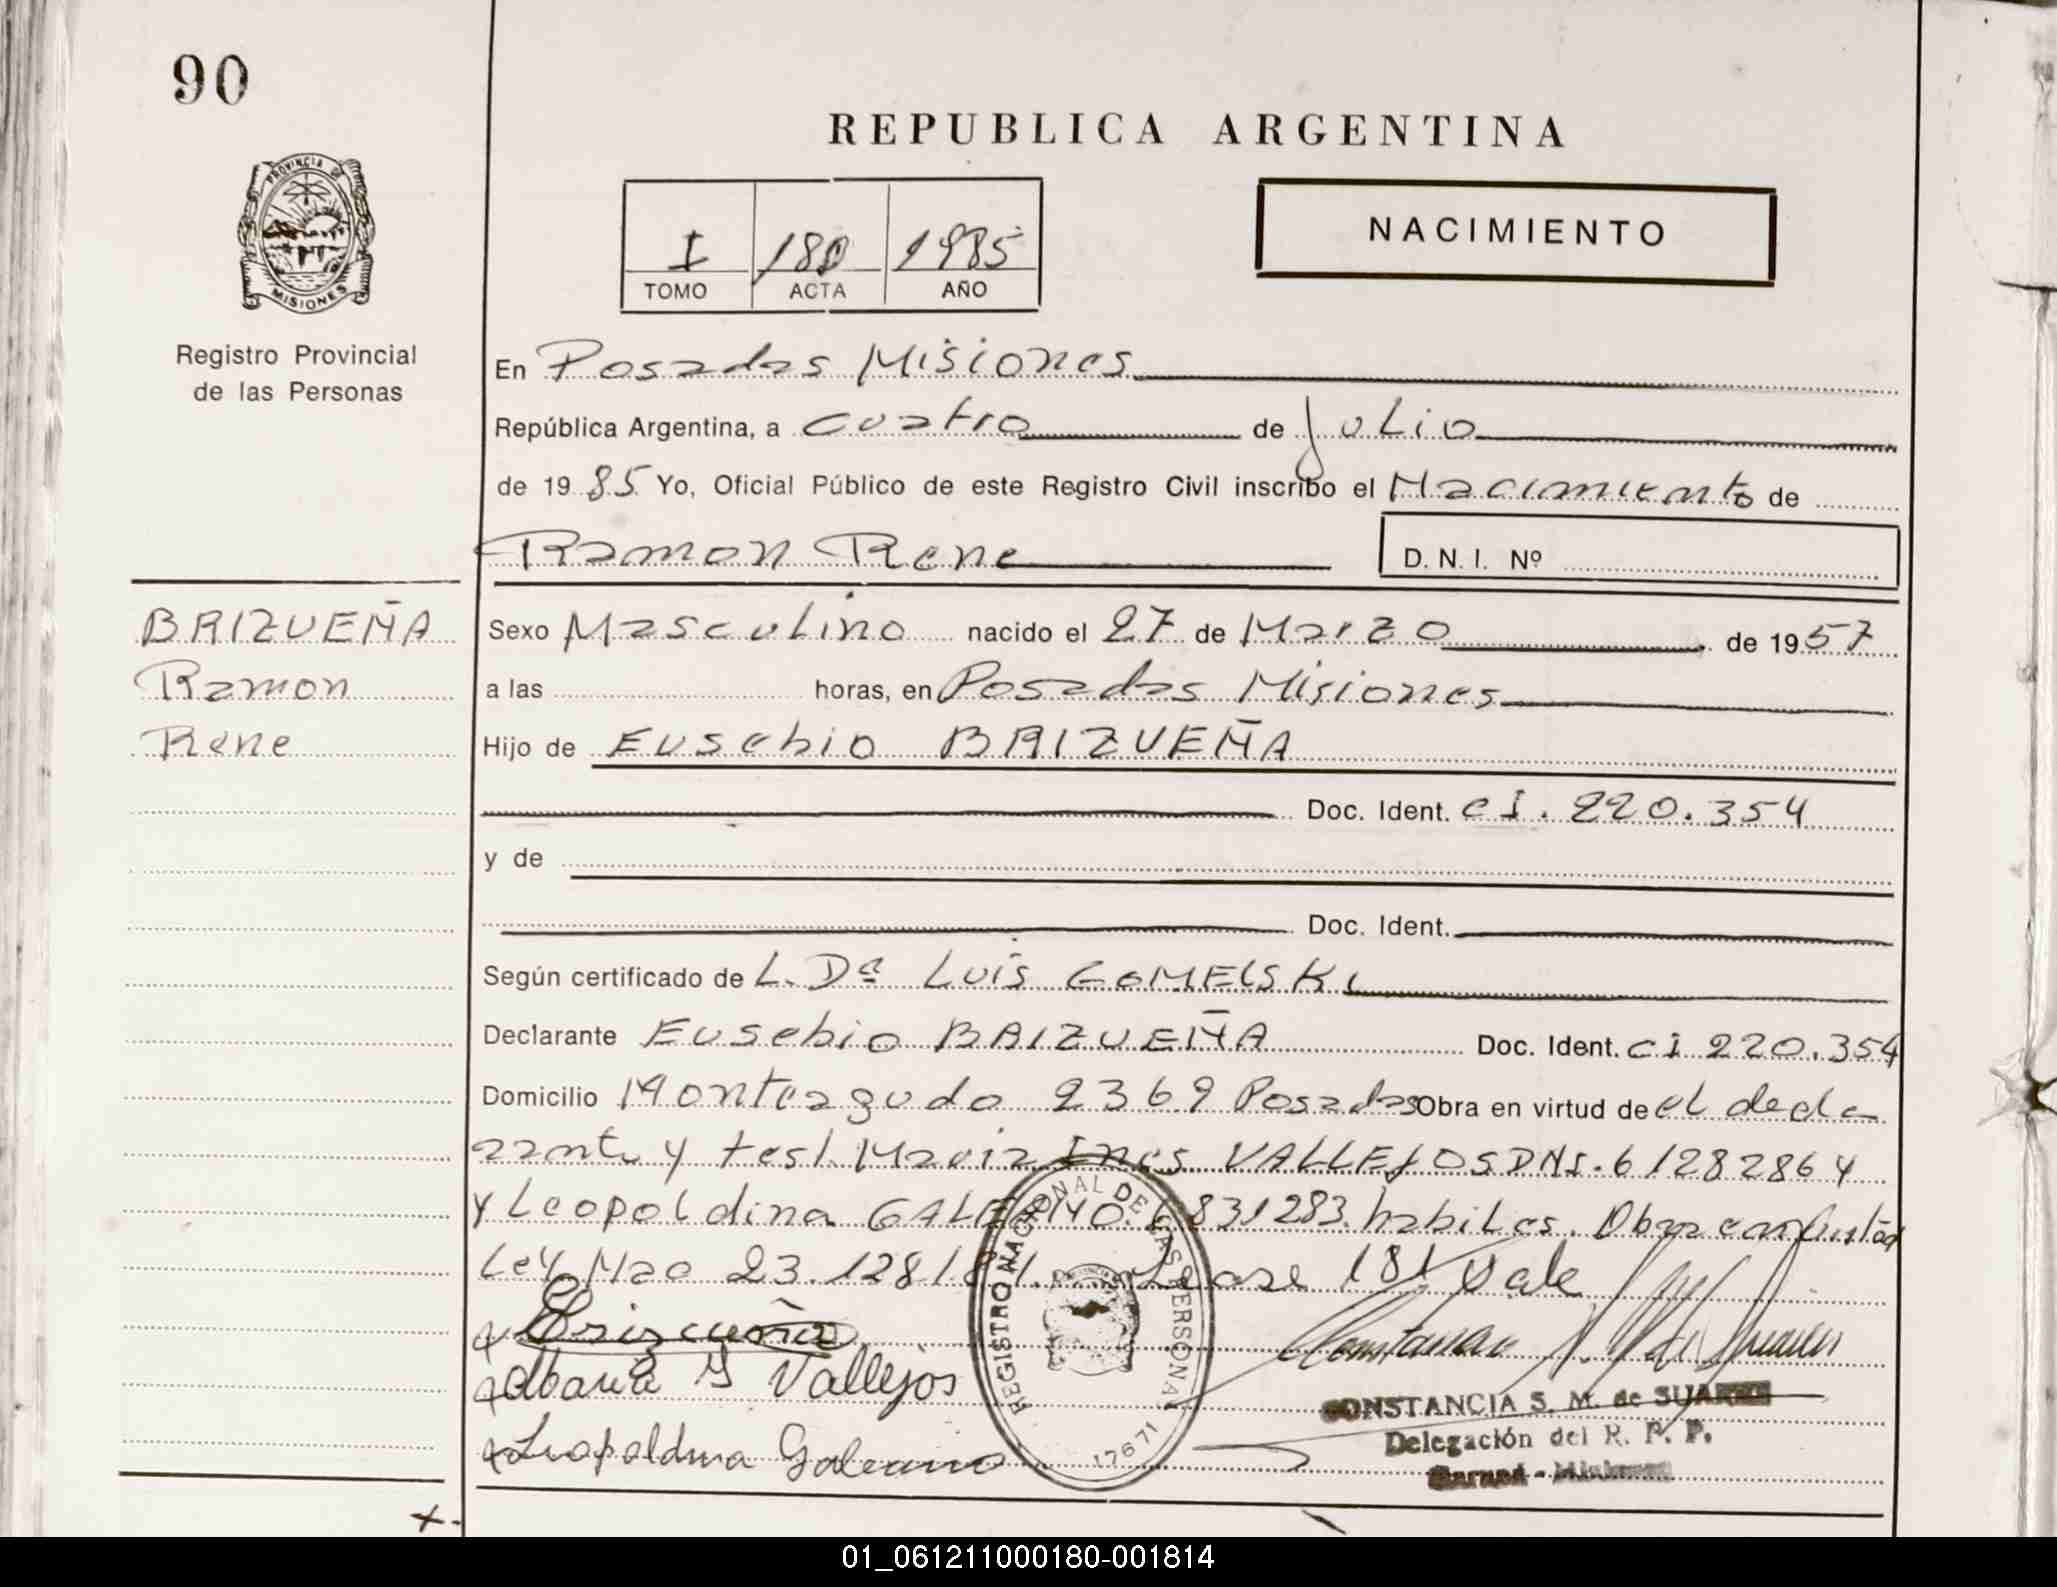 90
REPUBLICA ARGENTINA
PROVINCIA DE
MISIONES
Registro Provincial
de las Personas
I 180 1985
TOMO ACTA AÑO
NACIMIENTO
En Posadas Misiones
República Argentina, a cuatro de julio
de 1985 Yo, Oficial Público de este Registro Civil inscribo el Nacimiento de
Ramon Rene D. N. I. Nº
BRIZUEÑA
Ramon
Rene
Sexo Masculino nacido el 27 de Marzo de 1957
a las horas, en Posadas Misiones
Hijo de Eusebio BRIZUEÑA
Doc. Ident. CI. 220.354
y de
Doc. Ident.
Según certificado de L. Dª Luis GOMELSKI
Declarante Eusebio BRIZUEÑA Doc. Ident. CI 220.354
Domicilio Monteagudo 2369 Posadas Obra en virtud de el decla
rante y test. Maria Ines VALLEJOS DNI. 6 1282864
y Leopoldina GALEANO. 6831283. habiles. Obra
Ley Nro 23.128/84. Lease 181 Vale
Brizueña
Maria Y Vallejos
Leopoldina Galeano
REGISTRO NACIONAL DE LAS PERSONAS
17671
CONSTANCIA S. M. de SUAREZ
Delegación del R. P. P.
01_061211000180-001814